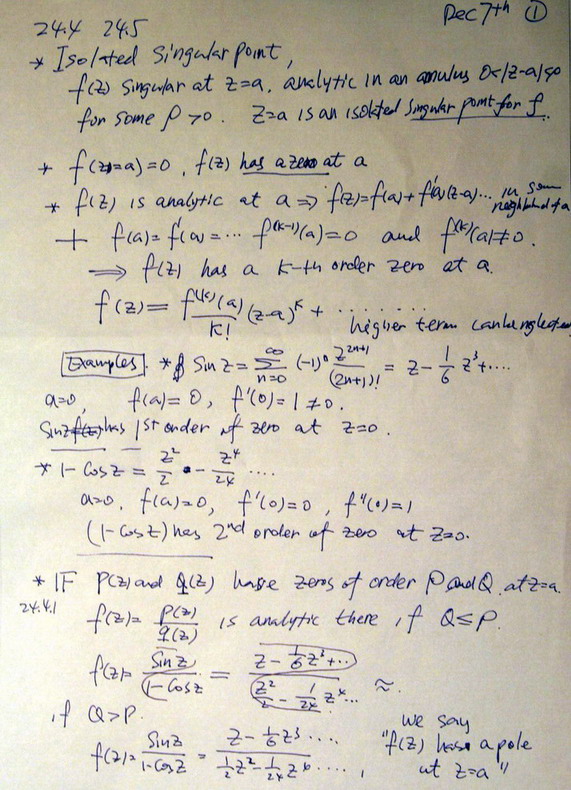 24.4 24.5 Dec 7th ①
* Isolated Singular point,
f(z) singular at z=a. analytic in an annulus 0<|z-a|<ρ
for some ρ>0. z=a is an isolated singular point for f.
* f(z=a)=0, f(z) has a zero at a
* f(z) is analytic at a ⇒ f(z)=f(a)+f'(a)(z-a)... in some neighborhood of a
+ f(a)=f'(a)=... f^(k-1)(a)=0 and f^(k)(a)≠0.
⇒ f(z) has a k-th order zero at a.
f(z)= f^(k)(a)/k! (z-a)^k + ........
higher term can be neglected
Examples. * Sin z = ∑_{n=0}^{∞} (-1)^n z^{2n+1}/(2n+1)! = z - 1/6 z^3 + ....
a=0, f(a)=0, f'(0)=1≠0.
Sinz has 1st order of zero at z=0.
* 1-Cosz = z^2/2 - z^4/24 ....
a=0. f(a)=0, f'(0)=0, f''(0)=1
(1-Cosz) has 2nd order of zero at z=0.
* IF P(z) and q(z) have zeros of order P and Q at z=a.
24.4.1
f(z)= P(z)/q(z) is analytic there if Q≤P.
f(z)= Sinz/1-Cosz = z - 1/6 z^3 + .../z^2/2 - 1/24 z^4... ≈.
if Q>P. we say
f(z)= Sinz/1-Cosz = z - 1/6 z^3 ..../1/2 z^2 - 1/24 z^6 ...., "f(z) has a pole
at z=a"